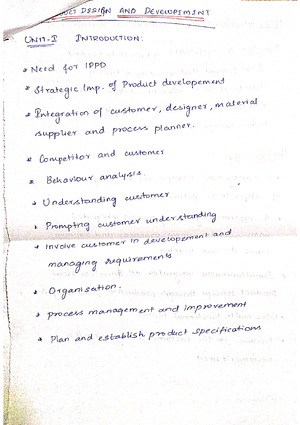 DESIGN AND DEVELOPEMENT
UNIT-I INTRODUCTION:
* Need for IPPD
* Strategic Imp. of Product developement
* Integration of customer, designer, material
supplier and process planner.
* Competitor and customer
* Behaviour analysis.
* Understanding customer
* Prompting customer understanding
* Involve customer in developement and
managing requirements
* Organisation.
* process management and improvement
* Plan and establish product specifications